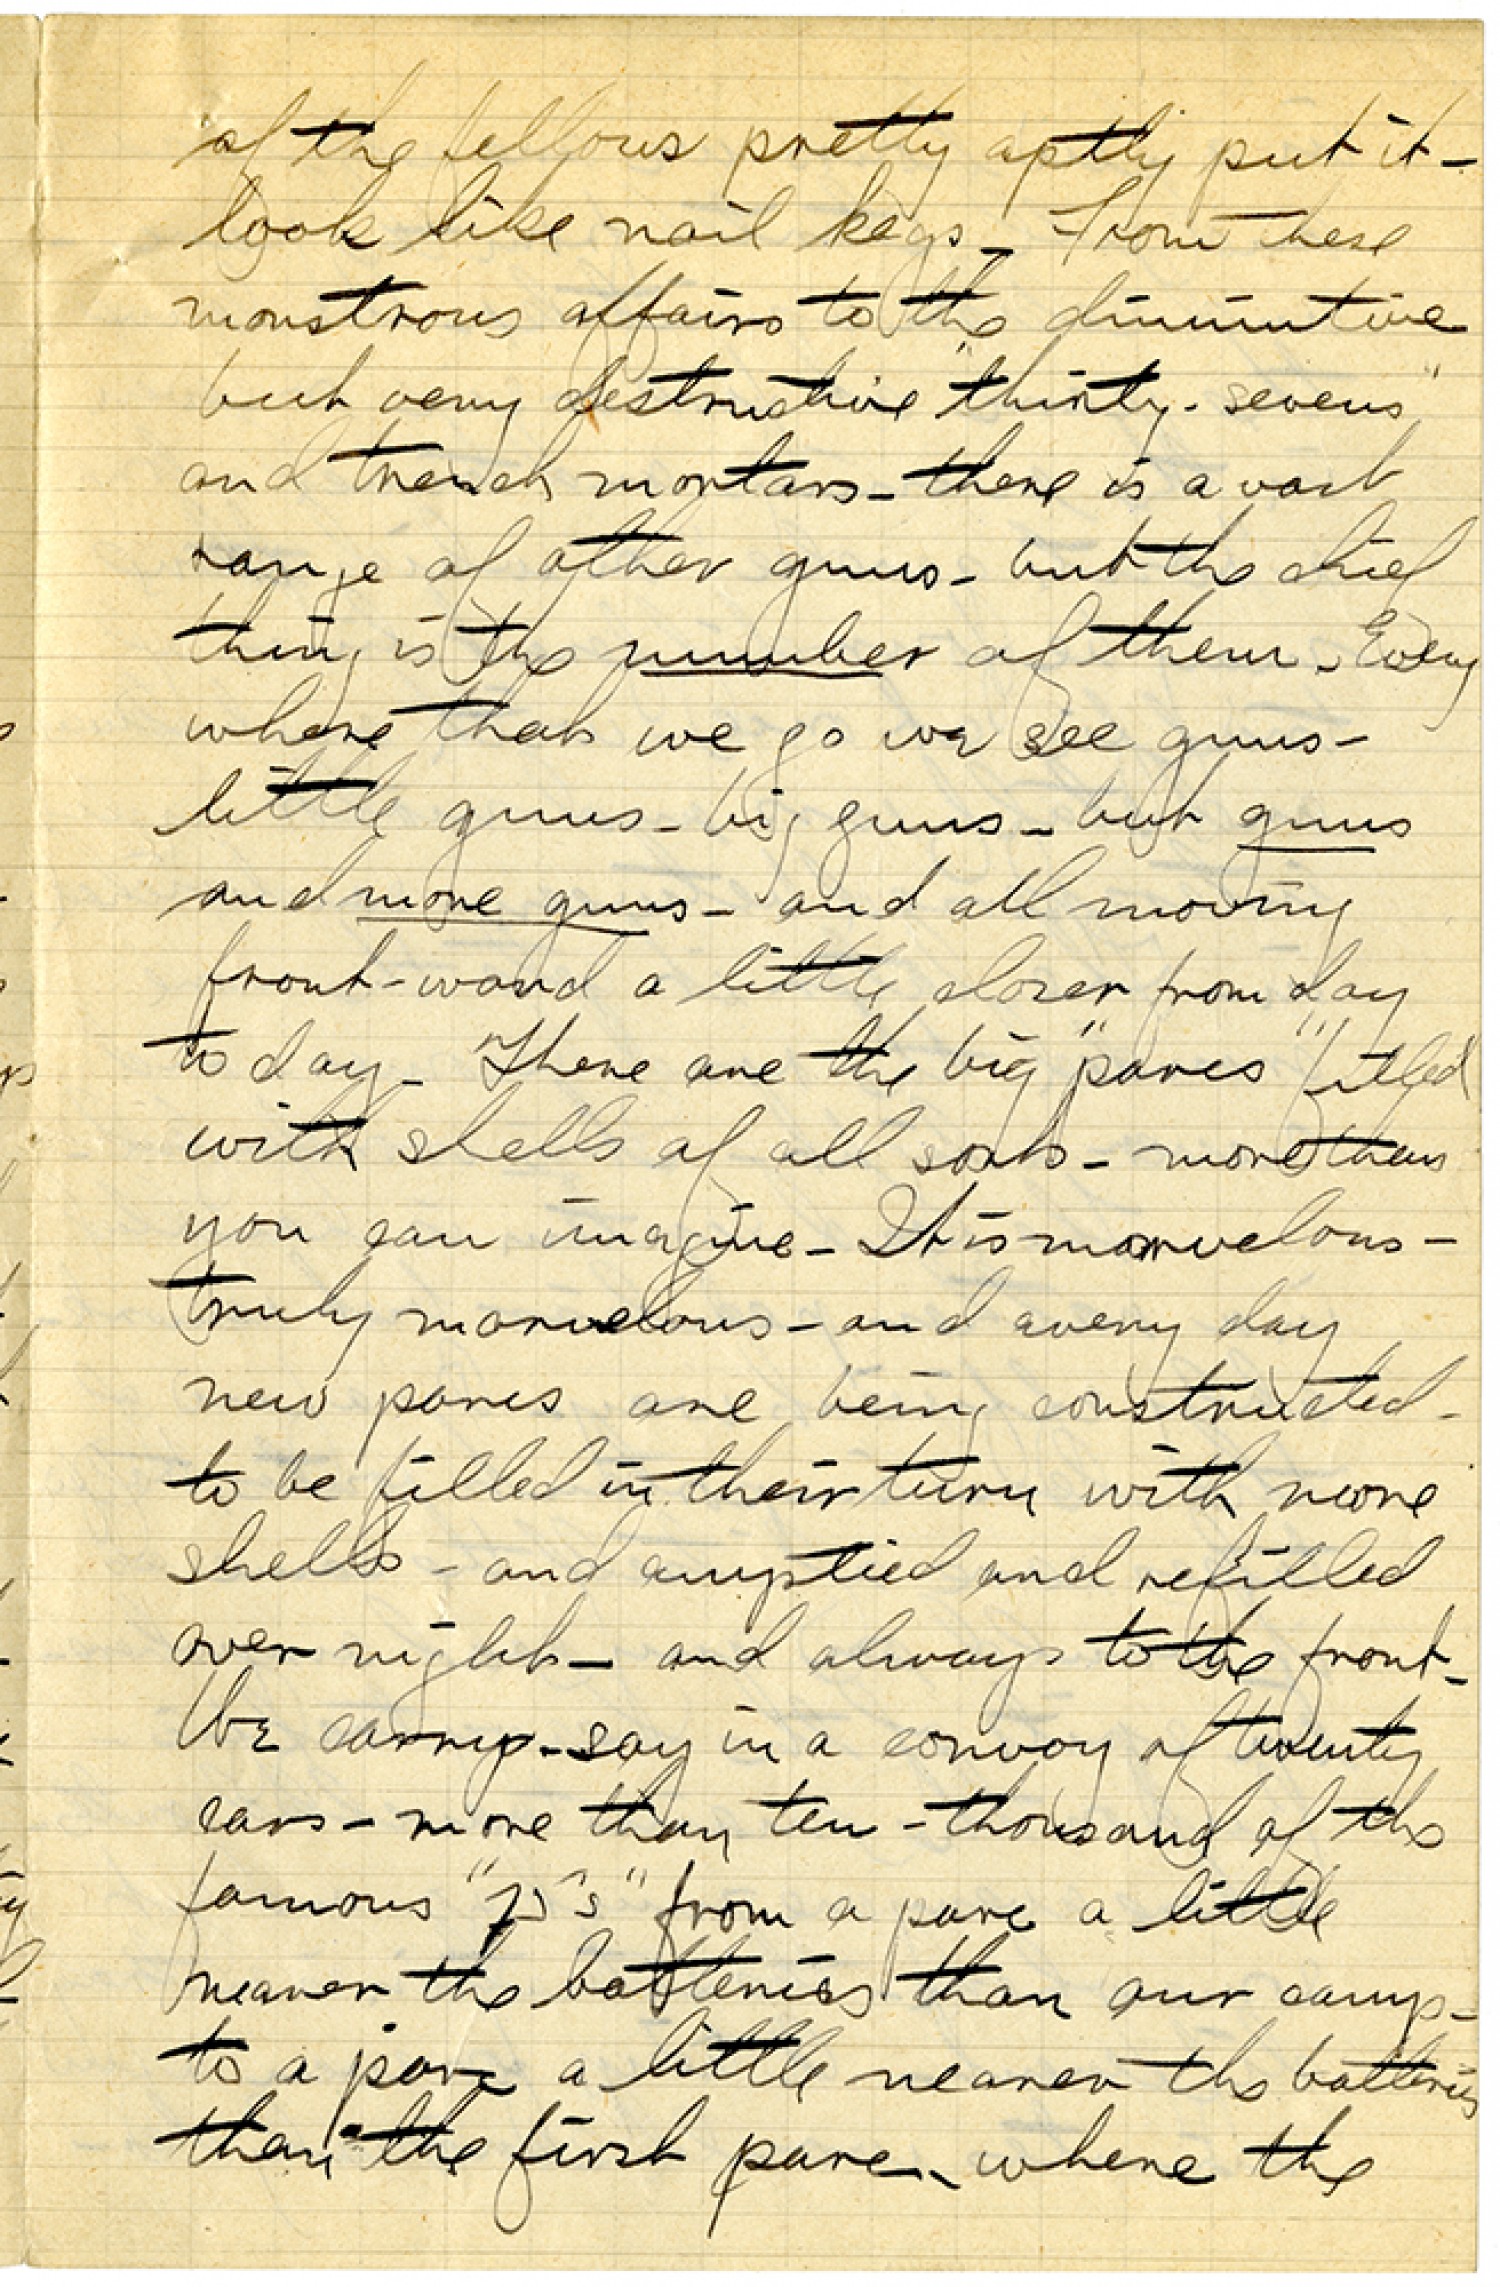 of the fellows pretty aptly put it –
look like nail kegs – From these
monstrous affairs to the diminutive
but very destructive "thirty-sevens"
and trench mortars – there is a vast
range of other guns – but the chief
thing is the number of them – Every
where that we go we see guns –
little guns – big guns – but guns
and more guns – and all moving
front-ward a little closer from day
to day – There are the big "parcs" filled
with shells of all sorts – more than
you can imagine – It is marvelous –
truly marvelous – and every day
new parcs are being constructed –
to be filled in their turn with more
shells – and emptied and refilled
over night – and always to the front –
We carry – say in a convoy of twenty
cars – more than ten-thousand of the
famous "75's" from a parc a little
nearer the batteries than our camp –
to a parc a little nearer the batteries
than the first parc – where the